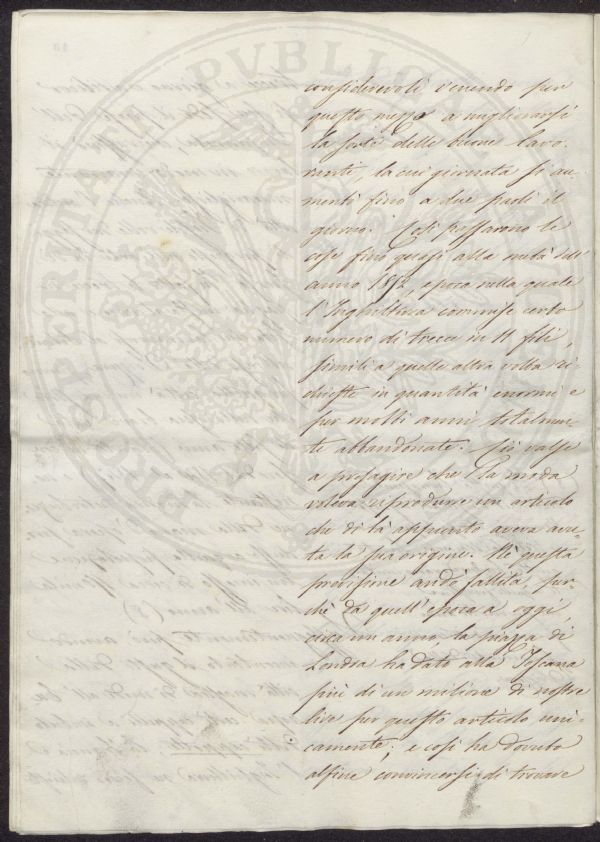 considerevoli venendo per
questo mezzo a migliorarsi
la sorte delle buone lavo-
ranti, la cui giornata si au-
mentò fino a due paoli il
giorno. Così passarono le
cose fino quasi alla metà dell'
anno 1852, epoca nella quale
l'Inghilterra commise certo
numero di trecce in 11 fili,
simili a quelle altra volta ri-
chieste in quantità enormi e
per molti anni totalmen-
te abbandonate. Ciò valse
a presagire che la moda
voleva riprodurre un articolo
che di là appunto aveva avu-
ta la sua origine. Nè questa
previsione andò fallita, per-
chè da quell'epoca a oggi,
circa un anno, la piazza di
Londra ha dato alla Toscana
più di un milione di nostre
lire per questo articolo uni-
camente; e così ha dovuto
alfine convincersi di trovare
PROSPERITATI PVBLICAE